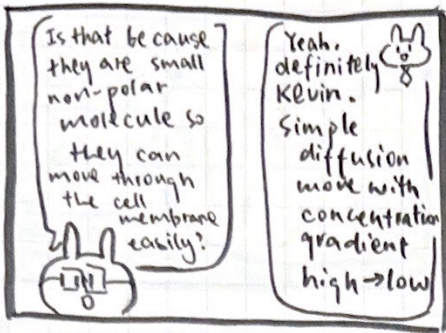 Is that because
they are small
non-polar
molecule so
they can
move through
the cell
membrane
easily?
Yeah.
definitely
Kevin.
Simple
diffusion
move with
concentration
gradient
high→low